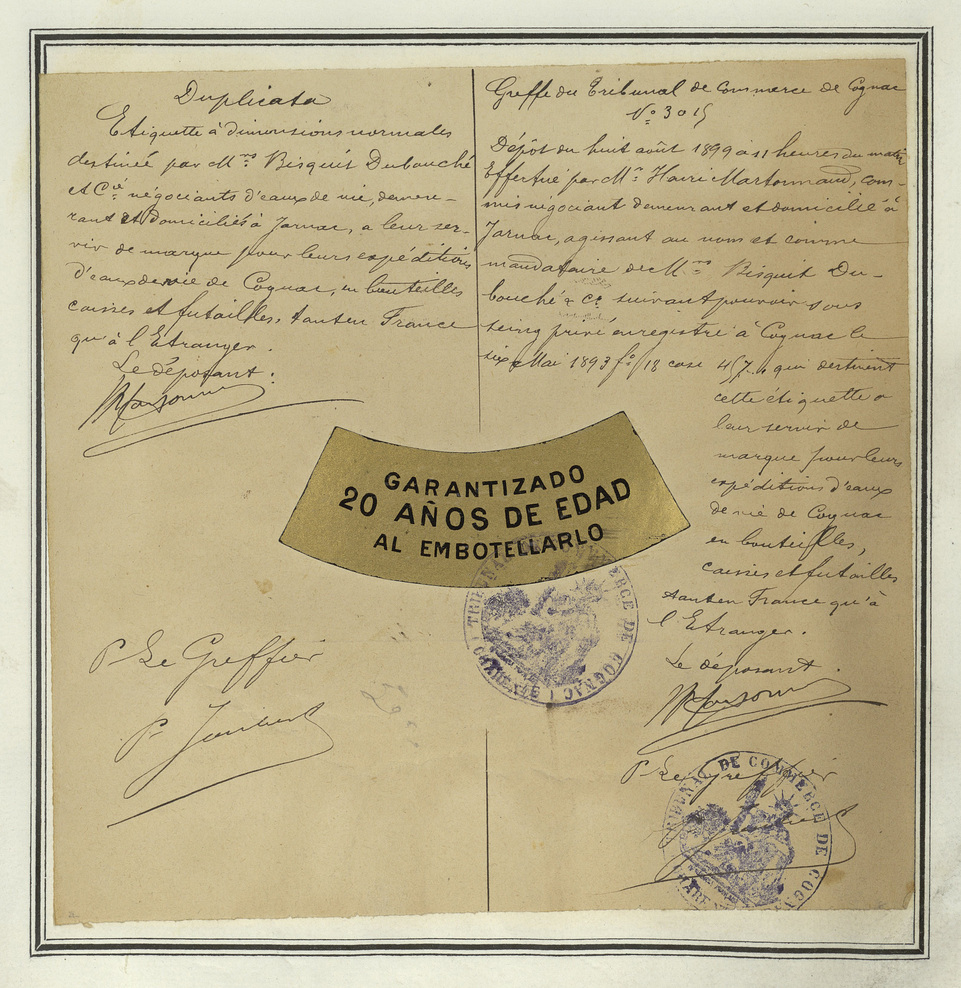 Duplicata
Etiquette à dimensions normales
destinée par M.rs Bisquit Dubouché
et Cie négociants d'eaux de vie, demeu-
rant et domiciliés à Jarnac, a leur ser-
vir de marque pour leurs expéditions
d'eaux de vie de Cognac, en bouteilles
caisses et futailles, tant en France
qu'à l'Etranger.
Le déposant:
P Le Greffier
Greffe du Tribunal de Commerce de Cognac
No 3015
Dépôt du huit août 1899 à 11 heures du matin
Effectué par Mr Henri Martonnaud, com-
mis négociant demeurant et domicilié à
Jarnac, agissant au nom et comme
mandataire de M.rs Bisquit Du-
bouché & Ce suivant pouvoir sous
seing privé enregistré à Cognac le
six Mai 1893 fo 18 case 457, qui destinent
cette étiquette a
leur servir de
marque pour leurs
expéditions d'eaux
de vie de Cognac
en bouteilles,
caisses et futailles
tant en France qu'à
l'Etranger.
Le déposant.
P Le Greffier
GARANTIZADO
20 AÑOS DE EDAD
AL EMBOTELLARLO
TRIBUNAL DE COMMERCE DE COGNAC (CHARENTE)
TRIBUNAL DE COMMERCE DE COGNAC